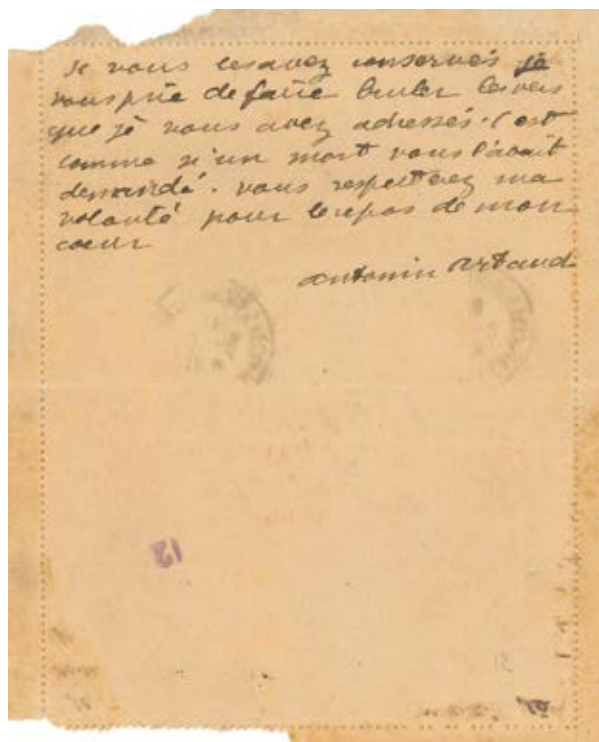 Si vous les avez conservés je
vous prie de faire bruler les vers
que je vous avez adressés. C'est
comme si un mort vous l'avait
demandé. vous respecterez ma
volonté pour le repos de mon
coeur
antonin Artaud
12